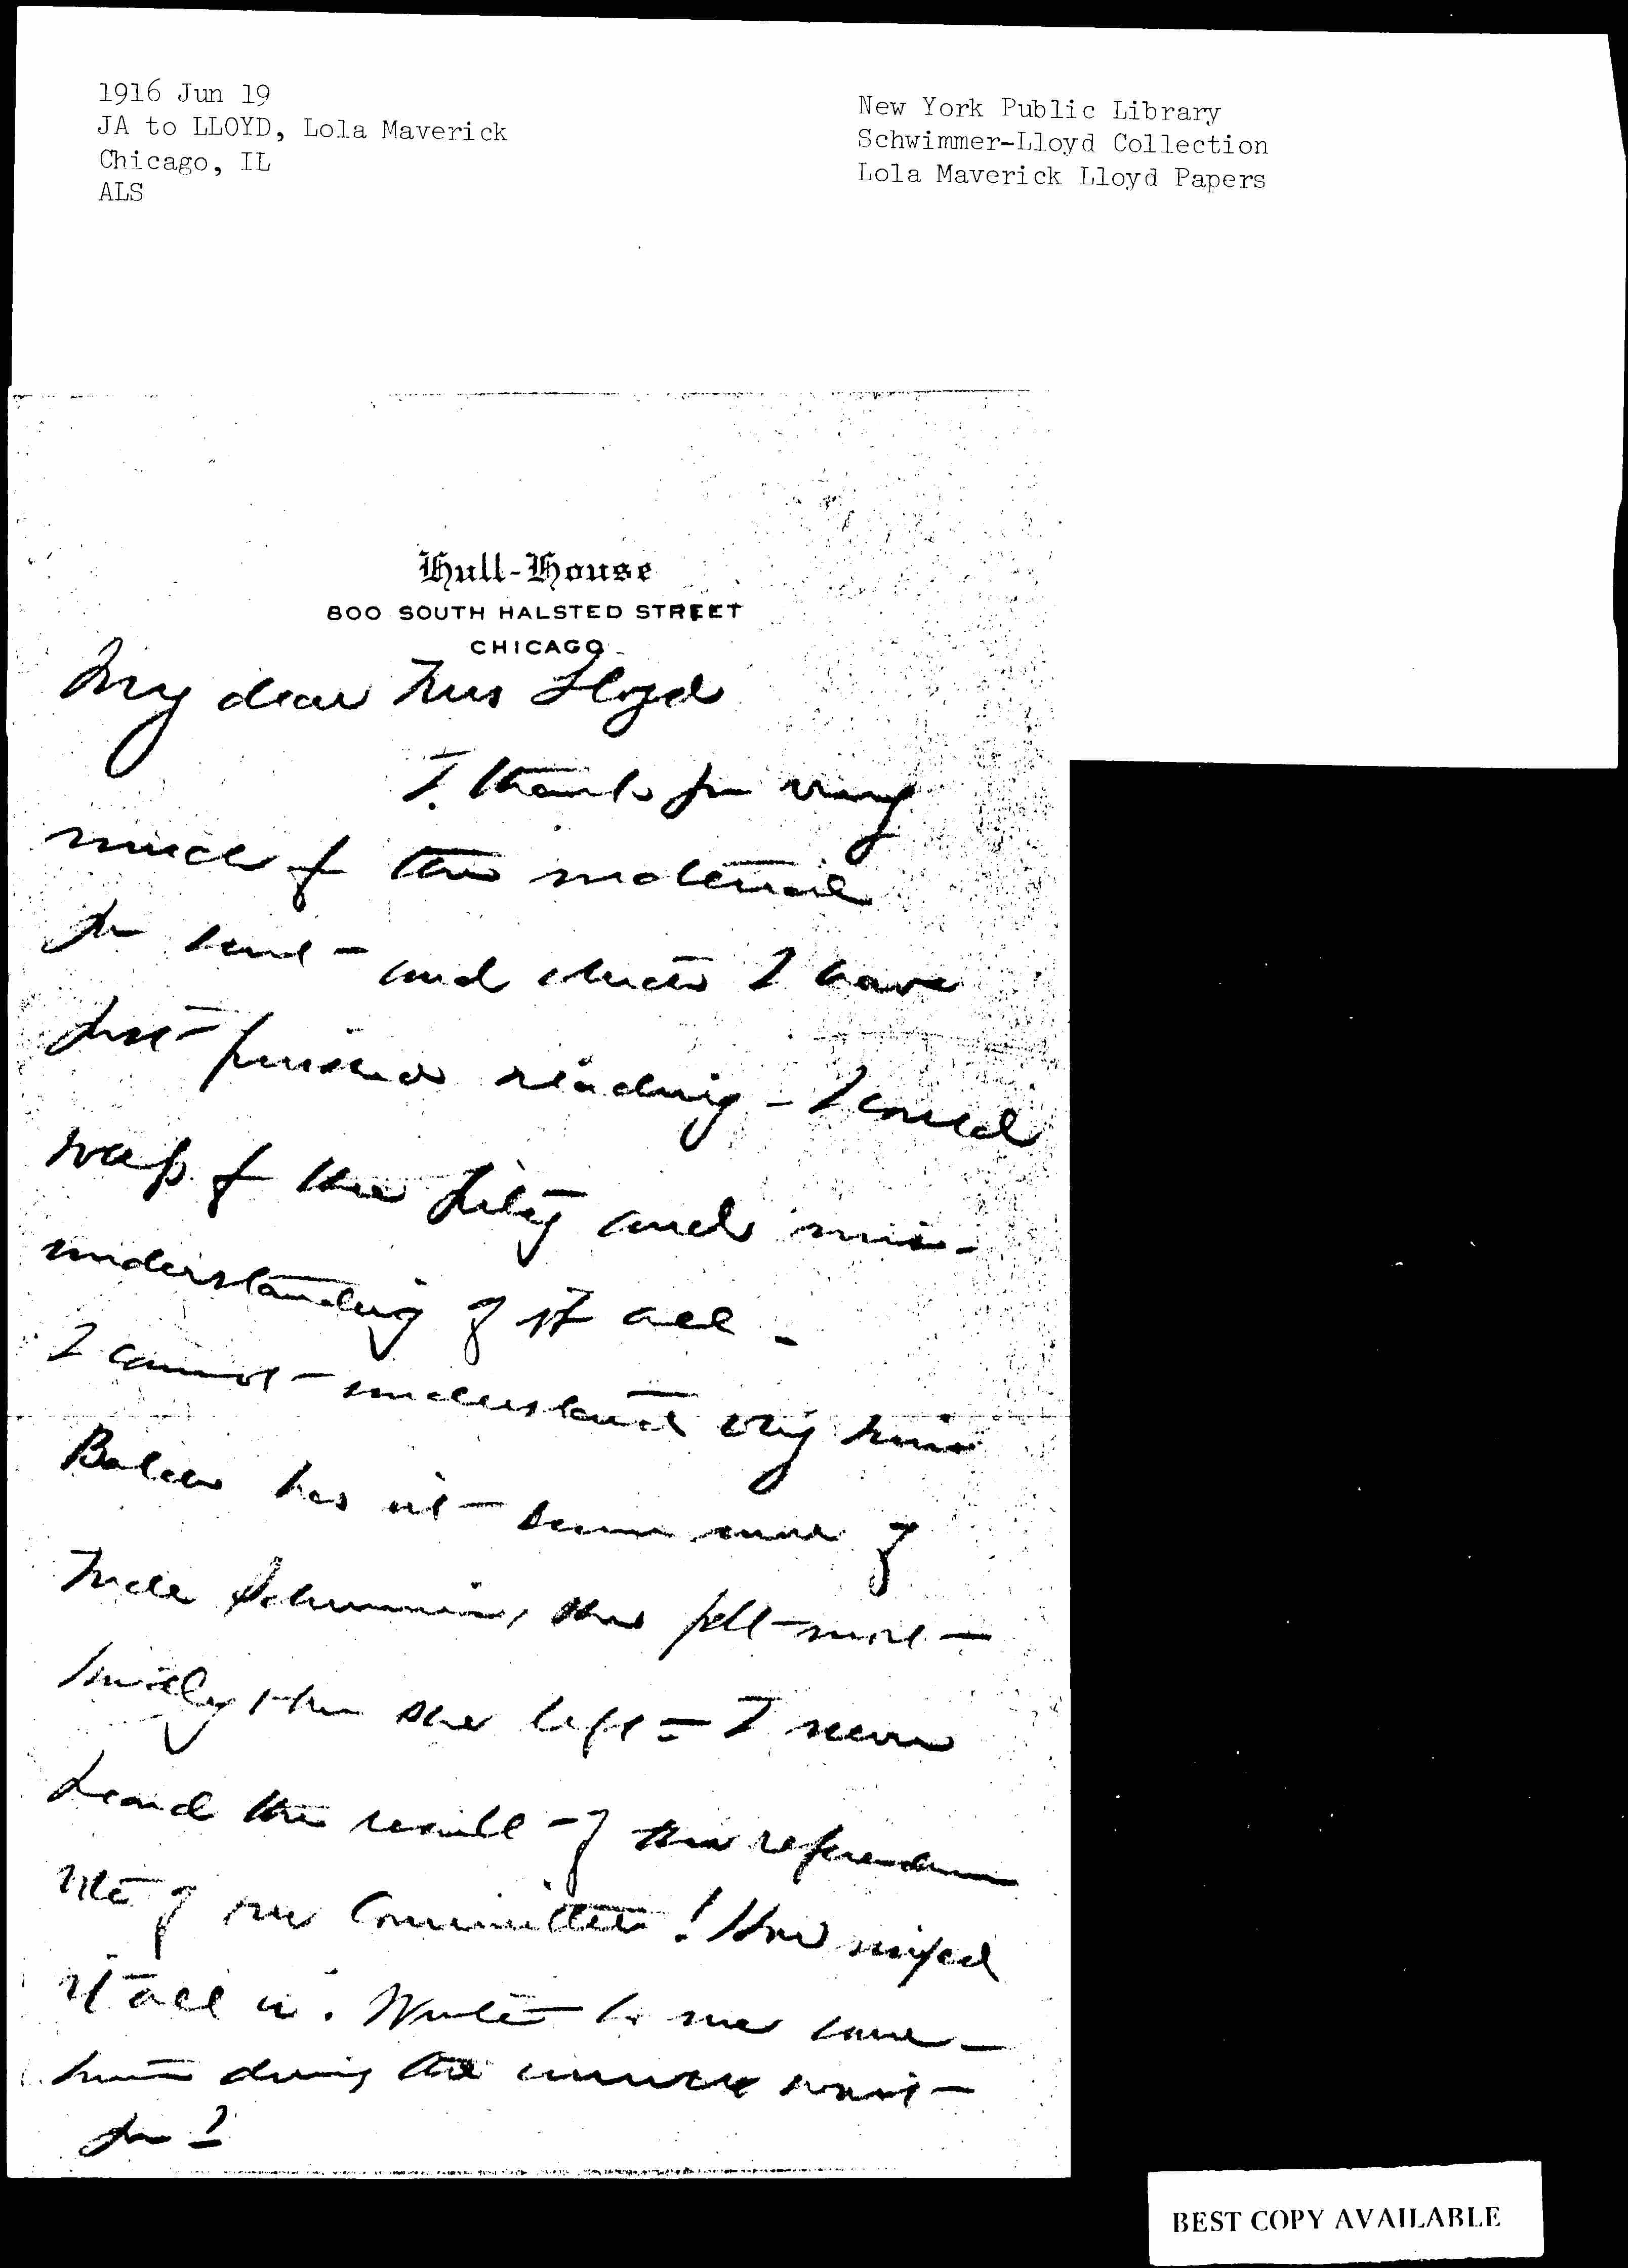 1916 Jun 19
JA to LLOYD, Lola Maverick
Chicago, IL
ALS
New York Public Library
Schwimmer-Lloyd Collection
Lola Maverick Lloyd Papers
Hull-House
800 SOUTH HALSTED STREET
CHICAGO
My dear Mrs Lloyd
I thank you very
much for the material
you sent - and which I have
just finished reading - I could
weep for the pity and mis-
understanding of it all -
I cannot understand why Miss
Balch has not seen more of
Mme Schwimmer, she felt most
kindly when she left - I never
heard the result of the referendum
vote of our Committee! How mixed
it all is. Write to me some-
time during the summer won't
you?
BEST COPY AVAILABLE